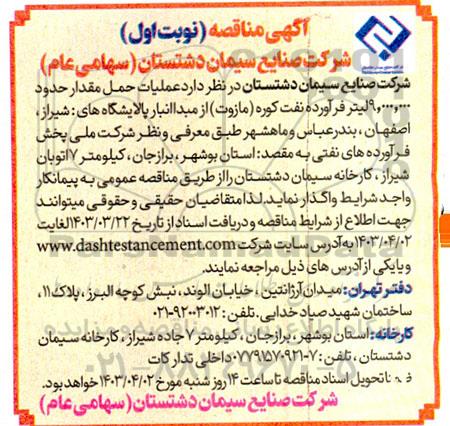 آگهی مناقصه (نوبت اول)
شرکت صنایع سیمان دشتستان (سهامی عام)
شرکت صنایع سیمان دشتستان در نظر دارد عملیات حمل مقدار حدود
۹,۰۰۰,۰۰۰ لیتر فرآورده نفت کوره (مازوت) از مبدا انبار پالایشگاه های: شیراز،
اصفهان، بندرعباس و ماهشهر طبق معرفی و نظر شرکت ملی پخش
فرآورده های نفتی به مقصد: استان بوشهر، برازجان، کیلومتر ۱۷ اتوبان
شیراز، کارخانه سیمان دشتستان را از طریق مناقصه عمومی به پیمانکار
واجد شرایط واگذار نماید. لذا متقاضیان حقیقی و حقوقی میتوانند
جهت اطلاع از شرایط مناقصه و دریافت اسناد از تاریخ ۱۴۰۳/۰۳/۲۲ لغایت
۱۴۰۳/۰۴/۰۲ به آدرس سایت شرکت www.dashtestancement.com
و یا یکی از آدرس های ذیل مراجعه نمایند.
دفتر تهران: میدان آرژانتین، خیابان الوند، نبش کوچه البرز، پلاک ۱۱،
ساختمان شهید صیاد خدایی. تلفن: ۹۲۰۰۳۰۱۲-۰۲۱
کارخانه: استان بوشهر، برازجان، کیلومتر ۷ جاده شیراز، کارخانه سیمان
دشتستان، تلفن: ۷-۰۷۷۹۱۵۷۰۹۲۱ داخلی تدارکات
تحویل اسناد مناقصه تا ساعت ۱۴ روز شنبه مورخ ۱۴۰۳/۰۴/۰۲ خواهد بود.
شرکت صنایع سیمان دشتستان (سهامی عام)
۰۲۱-۸۸۳۴۹۶۷۰-۵